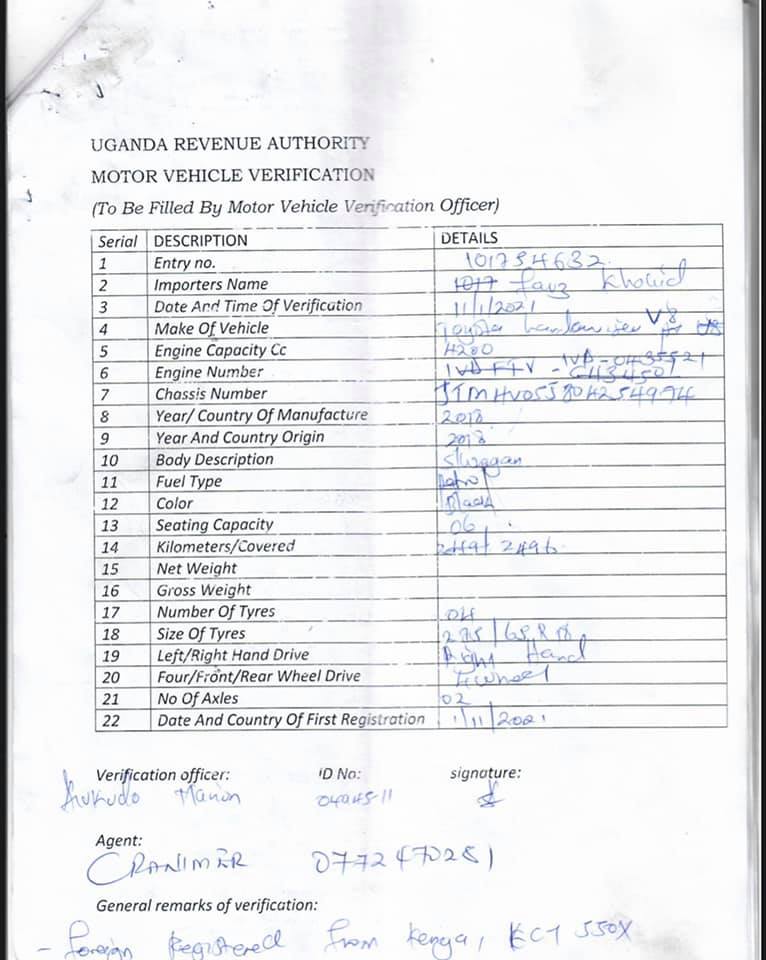 UGANDA REVENUE AUTHORITY
MOTOR VEHICLE VERIFICATION
(To Be Filled By Motor Vehicle Verification Officer)
Serial DESCRIPTION DETAILS
1 Entry no. 101734632
2 Importers Name Fayz Khalid
3 Date And Time Of Verification 11/1/2021
4 Make Of Vehicle Toyota Landcruiser V8
5 Engine Capacity Cc 4200
6 Engine Number 1VD-0435521
1VD FTV
7 Chassis Number JTMHV05J804254994
8 Year/ Country Of Manufacture 2018
9 Year And Country Origin 2018
10 Body Description S/wagon
11 Fuel Type
12 Color Black
13 Seating Capacity 06
14 Kilometers/Covered 2496
15 Net Weight
16 Gross Weight
17 Number Of Tyres 04
18 Size Of Tyres 285/65R18
19 Left/Right Hand Drive Right Hand
20 Four/Front/Rear Wheel Drive 4wheel
21 No Of Axles 02
22 Date And Country Of First Registration 1/11/2021
Verification officer: ID No: signature:
Marion
Agent:
CRANIMER 0772470281
General remarks of verification:
- Foreign Registered from Kenya, KCT 550X